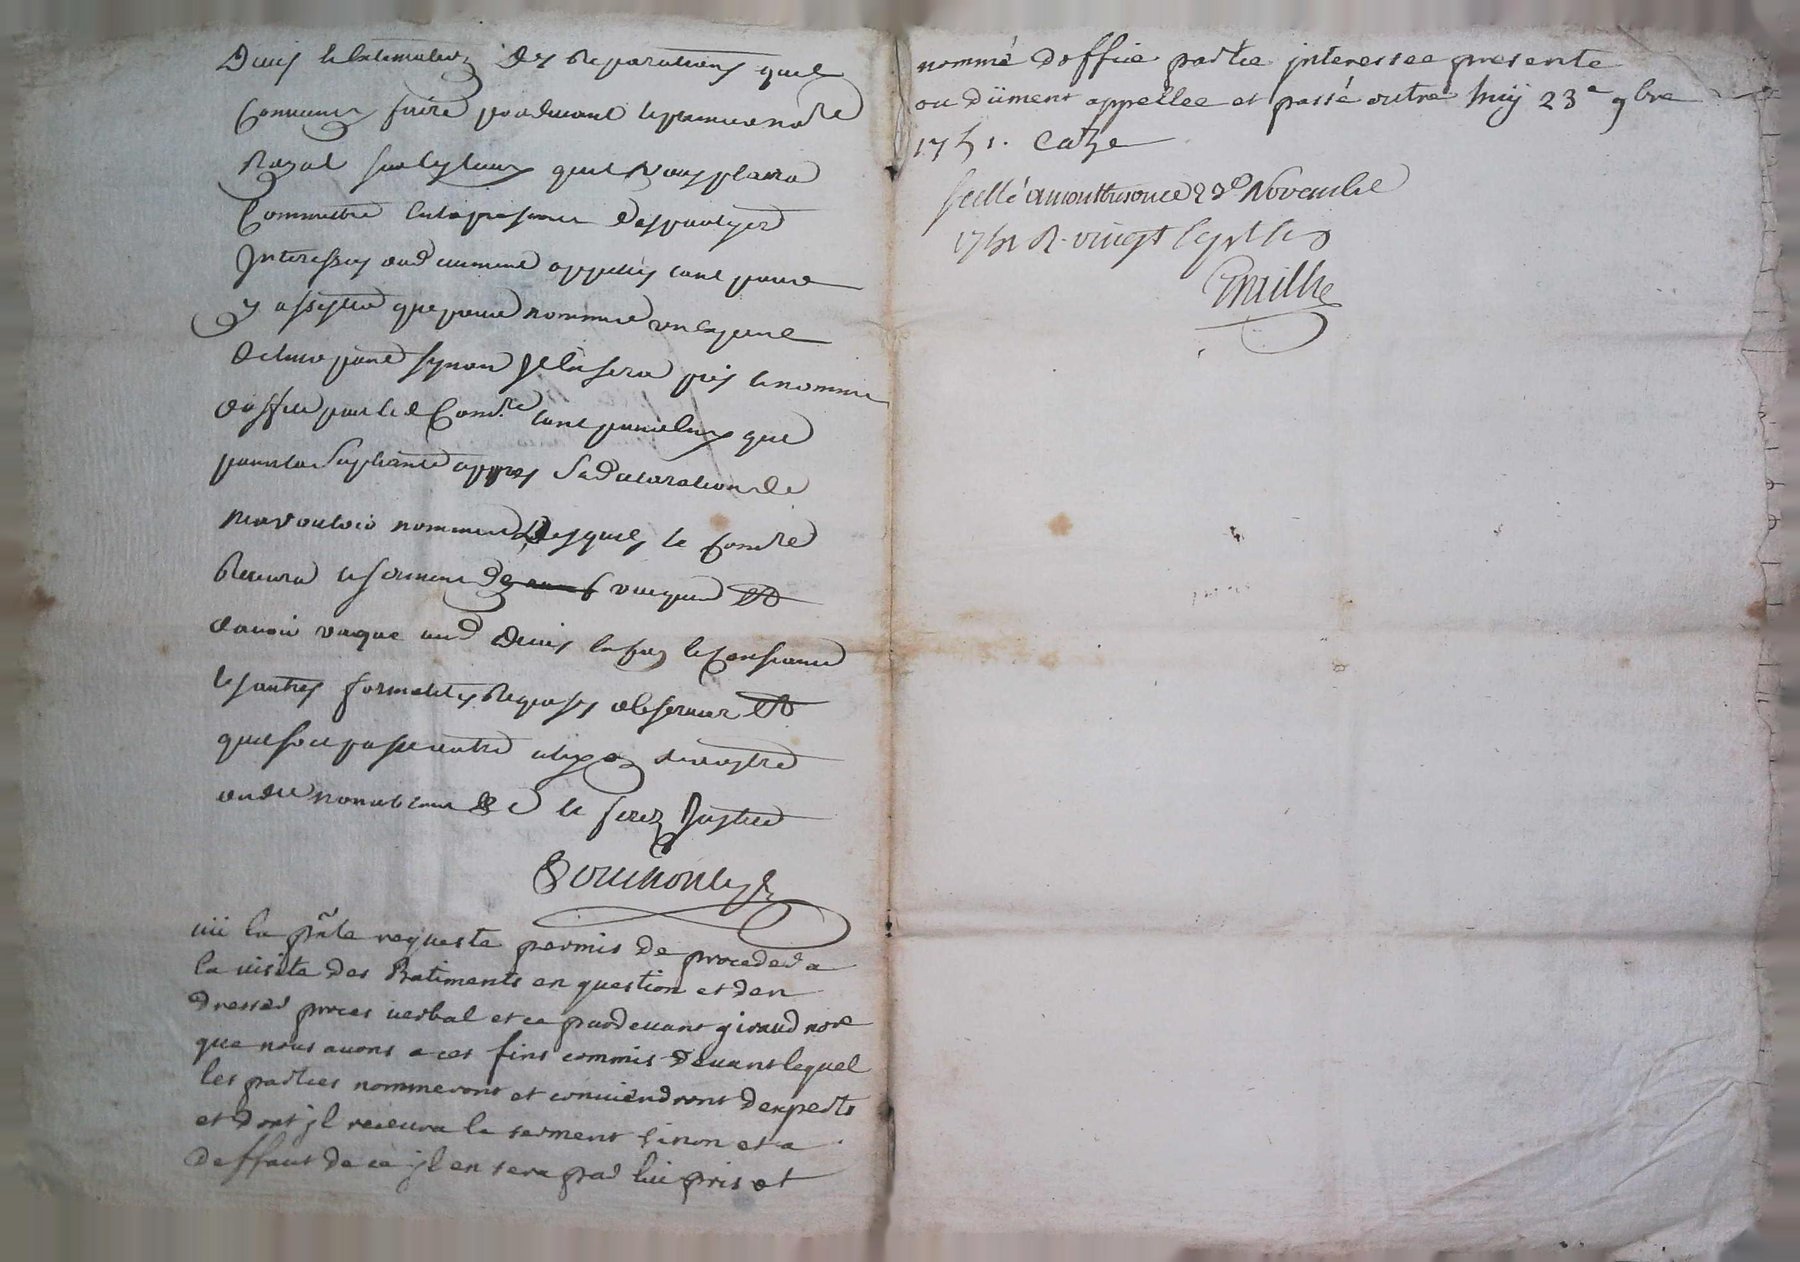 Devis et Estimation des Reparations quil
Convient faire pardevant le premier no.re
Royal sur les lieux quil vous plaira
Commettre En la presence des partyes
Interessées ou duement appellés tant pour
y assister que pour nommer un expert
de leur part synon Il En sera pris et nommé
doffice par led Com.re tant pour eux que
pour la Supliante appres Sa declaration de
nen vouloir nommer desquels le Com.re
Recevra le serment de vacquer et
davoir vaqué aud Devis
les autres formalités Requises observer et
quil soit passé outre
et le serez Justice
uü la pñte requeste permis de proceder a
la uisite des Batiments en question et den
dresser proces uerbal et ce pardeuant giraud no.re
que nous auons a ces fins commis deuant lequel
les parties nommeront et conuiendront dexperts
et dont jl receura le serment sinon et a
deffaut de ce jl en sera par lui pris et
nommé doffice partie jnteressee presente
ou düment appellee et passé outre huÿ 23e 9bre
1751. Caze
scellé a montbrison ce 23e Novembre
1751 R. vingt sept s